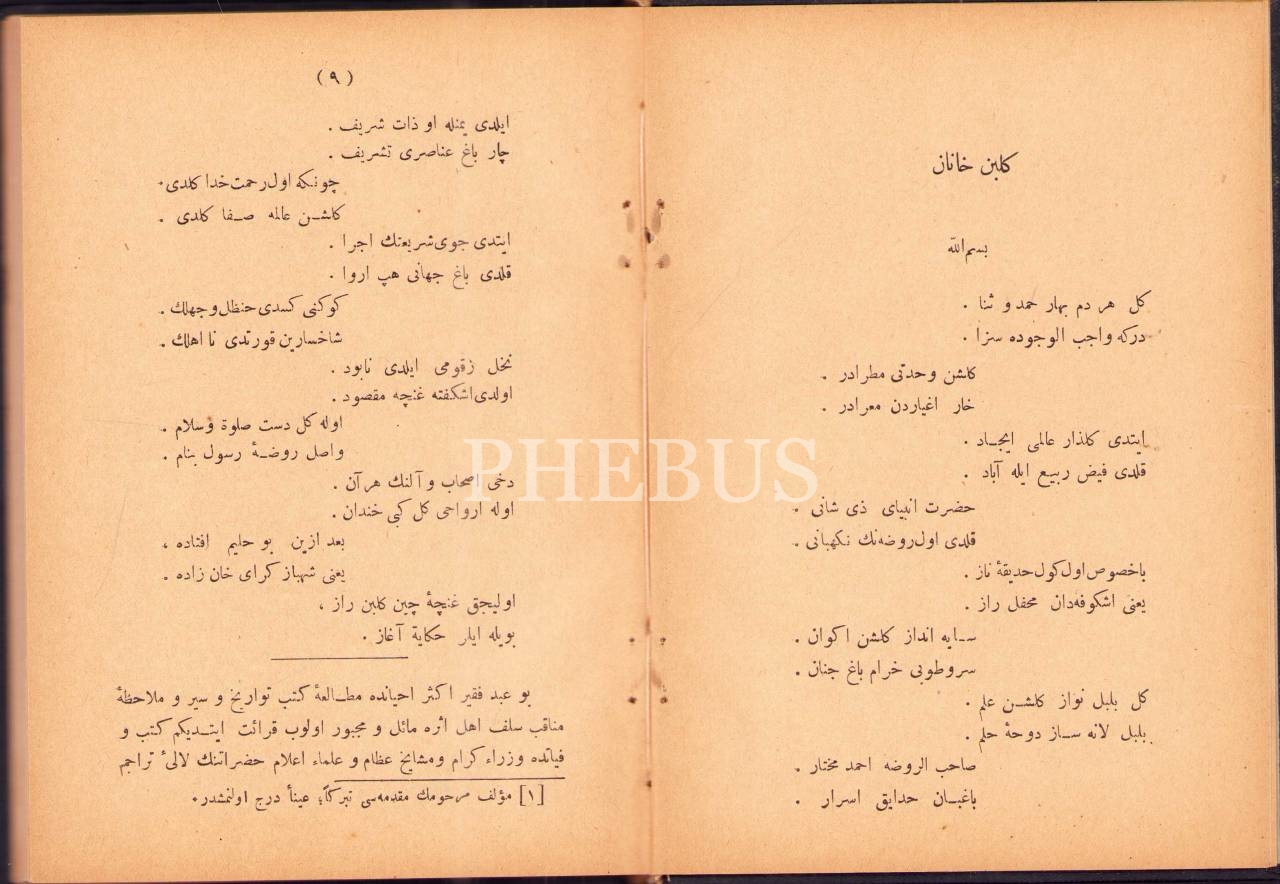 كلبن خانان
بسم‌الله
كل هر دم بهار حمد و ثنا .
دركه واجب الوجوده سزا .
كلشن وحدتی مطرادر .
خار اغیاردن معرادر .
ایتدی كلذار عالمی ایجاد .
قلدی فیض ربیع ایله آباد .
حضرت انبیای ذی شانی .
قلدی اول روضه‌نك نكهبانی .
باخصوص اول كول حدیقۀ ناز .
یعنی اشكوفه‌دان محفل راز .
سایه انداز كلشن اكوان .
سروطوبی خرام باغ جنان .
كل بلبل نواز كلشن علم .
بلبل لانه ساز دوحۀ حلم .
صاحب الروضه احمد مختار .
باغبان حدایق اسرار .
(٩)
ایلدی یمنله او ذات شریف .
چار باغ عناصری تشریف .
چونكه اول رحمت خدا كلدی .
كلشن عالمه صفا كلدی .
ایتدی جوی شریعتك اجرا .
قلدی باغ جهانی هپ اروا .
كوكنی كسدی حنظل و جهلك .
شاخسارین قورتدی نا اهلك .
نخل زقومی ایلدی نابود .
اولدی اشكفته غنچه مقصود .
اوله كل دست صلوة وسلام .
واصل روضۀ رسول بنام .
دخی اصحاب و آلنك هرآن .
اوله ارواحی كل كبی خندان .
بعد ازین بو حلیم افتاده ،
یعنی شهباز كرای خان زاده .
اولیجق غنچۀ چین كلبن راز ،
بویله ایلر حكایة آغاز .
بو عبد فقیر اكثر احیانده مطالعۀ كتب تواریخ و سیر و ملاحظۀ
مناقب سلف اهل اثره مائل و مجبور اولوب قرائت ایتدیكم كتب و
فیاتده وزراء كرام ومشایخ عظام و علماء اعلام حضراتنك لالیٔ تراجم
[١] مؤلف مرحومك مقدمه‌سی تبركاً؛ عیناً درج اولنمشدر .
PHEBUS